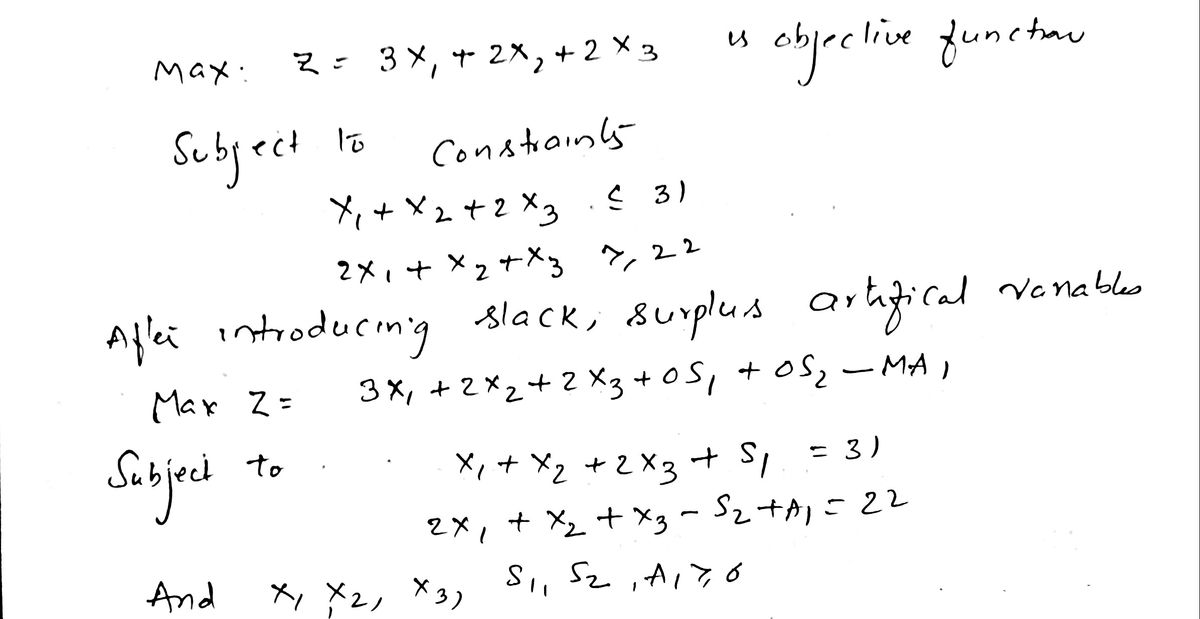 Max: Z = 3X₁ + 2X₂ + 2X₃ is objective function
Subject to Constraints
X₁ + X₂ + 2X₃ ≤ 31
2X₁ + X₂ + X₃ ≥ 22
After introducing slack, surplus artifical variables
Max Z = 3X₁ + 2X₂ + 2X₃ + 0S₁ + 0S₂ – MA₁
Subject to X₁ + X₂ + 2X₃ + S₁ = 31
2X₁ + X₂ + X₃ – S₂ + A₁ = 22
And X₁, X₂, X₃, S₁, S₂, A₁ ≥ 0